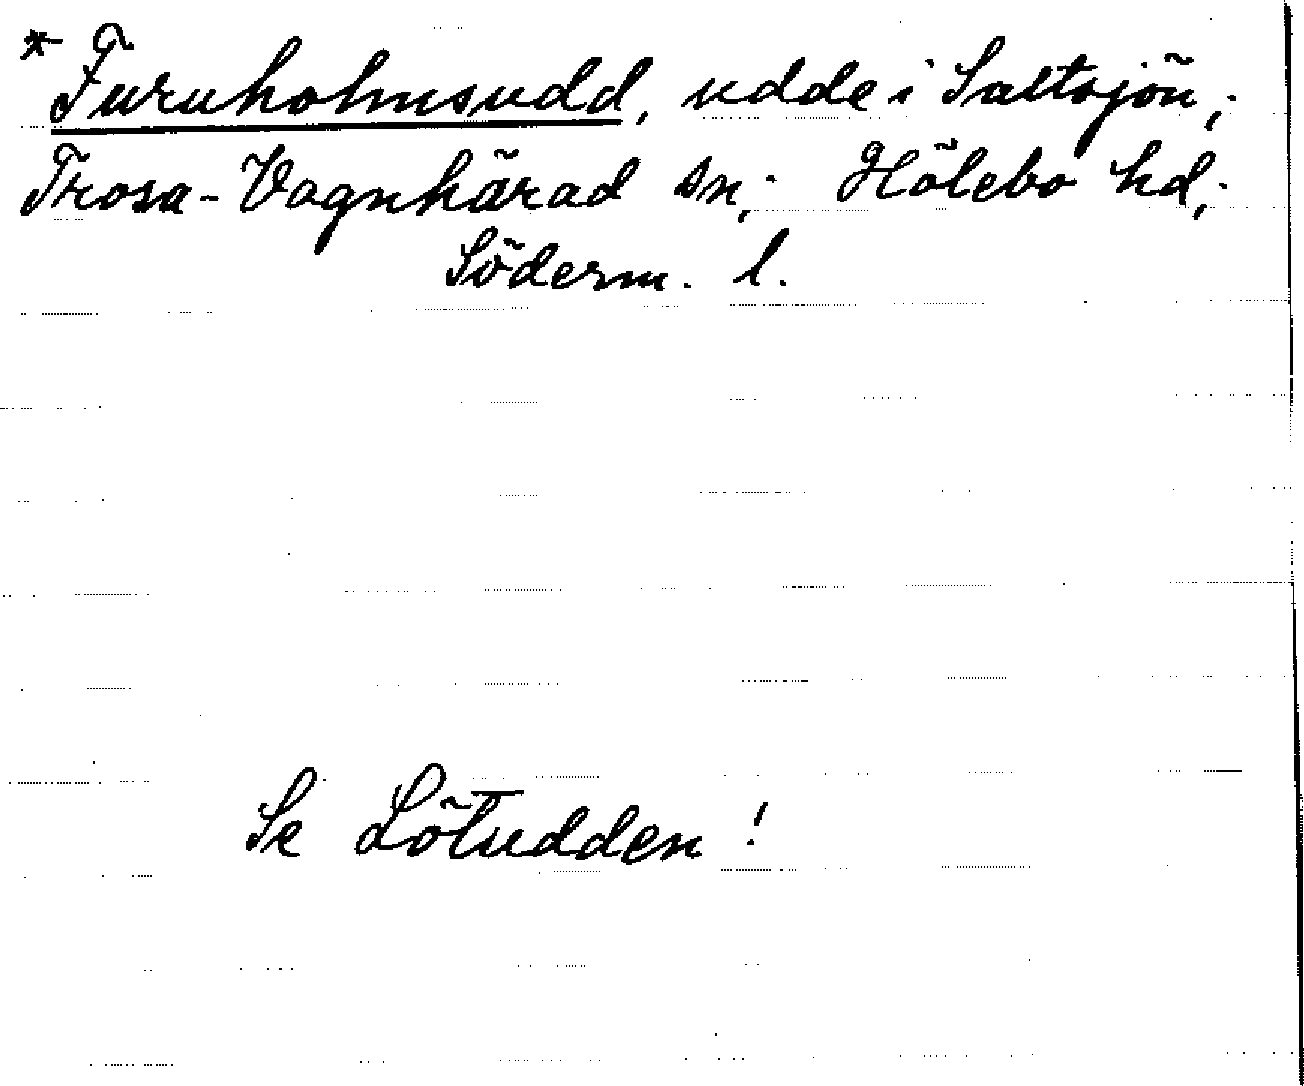 *Furuholmsudd, udde i Saltsjön,
Trosa-Vagnhärad sn, Hölebo hd,
Söderm. l.
Se Lötudden!